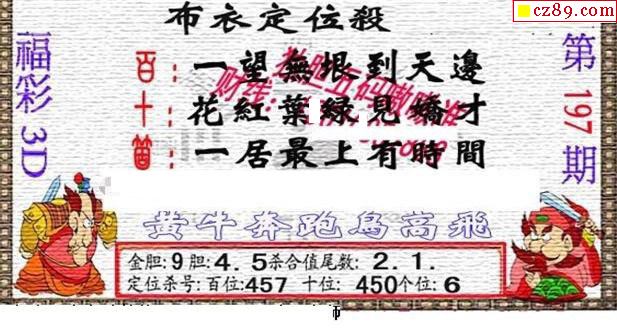 cz89.com
布衣定位殺
福彩3D
第197期
百:一望無垠到天邊
十:花紅葉緑見嬌才
個:一居最上有時間
黄牛奔跑鳥高飛
金胆:9胆:4.5杀合值尾数:2.1.
定位杀号:百位:457 十位: 450个位:6